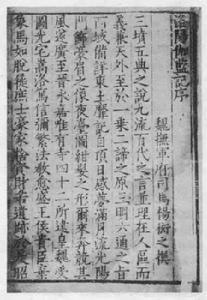 洛陽伽藍記序
魏撫軍府司馬楊衒之撰
三墳五典之說九流百代之言並理在人區而
義兼天外至於一乘二諦之原三明六通之旨
西域備詳東土靡記自頂日感夢滿月流光陽
門飾豪眉之像夜臺圖紺髮之形爾來奔競其
風遂廣至晉永嘉唯有寺四十二所逮皇魏受
圖光宅嵩洛篤信彌繁法教愈盛王侯貴臣棄
象馬如脫屣庶士豪家捨資財若遺跡於是昭